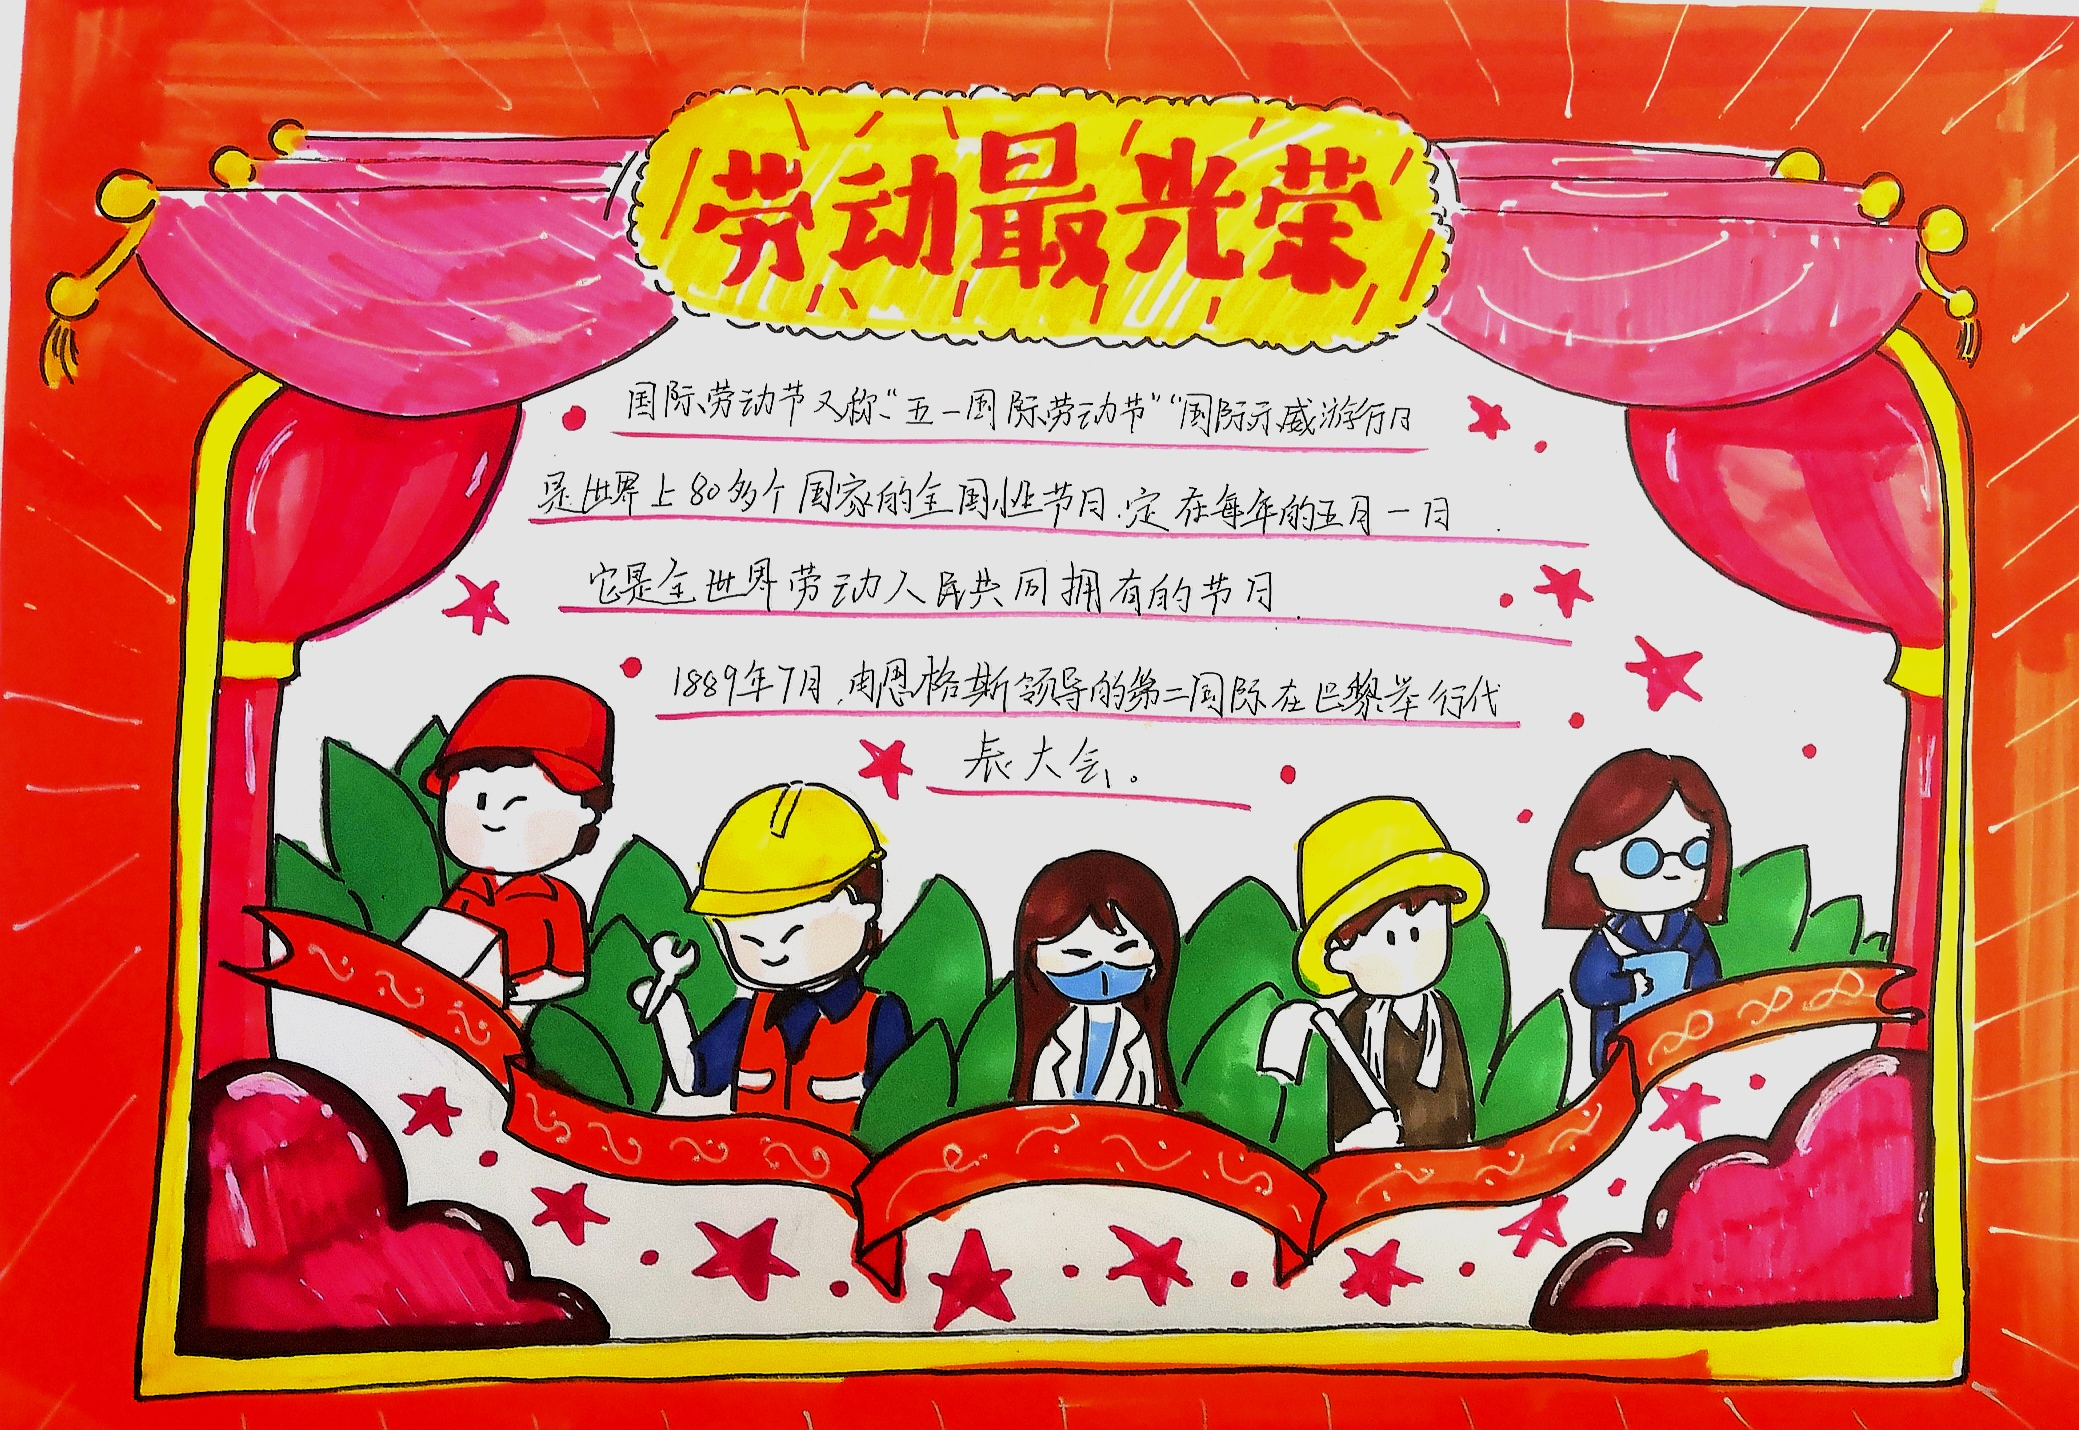 劳动最光荣
国际劳动节又称“五一国际劳动节”“国际示威游行日
是世界上80多个国家的全国性节日.定在每年的五月一日
它是全世界劳动人民共同拥有的节日
1889年7月.由恩格斯领导的第二国际在巴黎举行代
表大会。